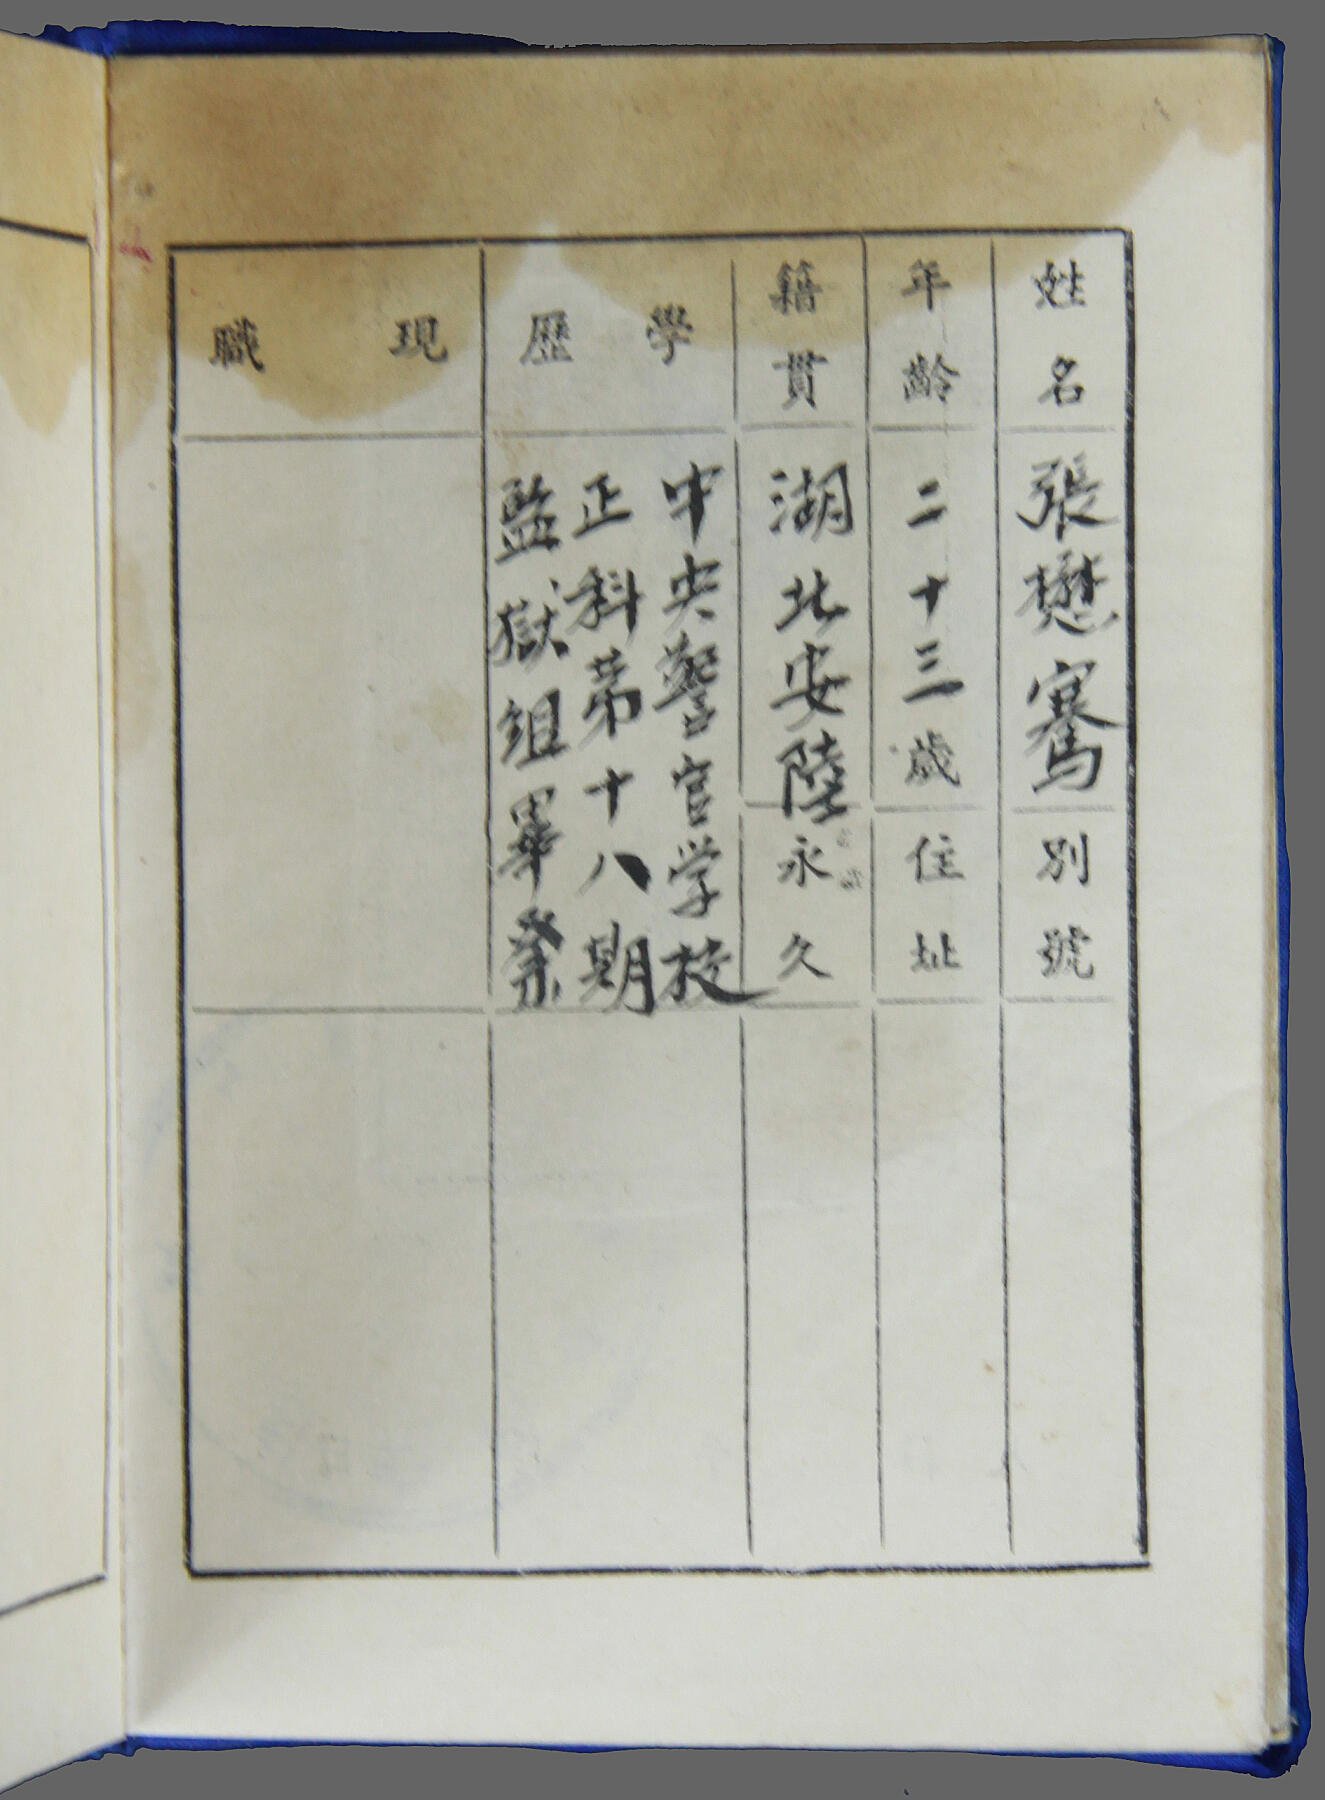 姓名 張懋騫 別號
年齡 二十三歲 住址
籍貫 湖北安陸 永久
學歷
中央警官学校
正科第十八期
監獄組畢業
現職